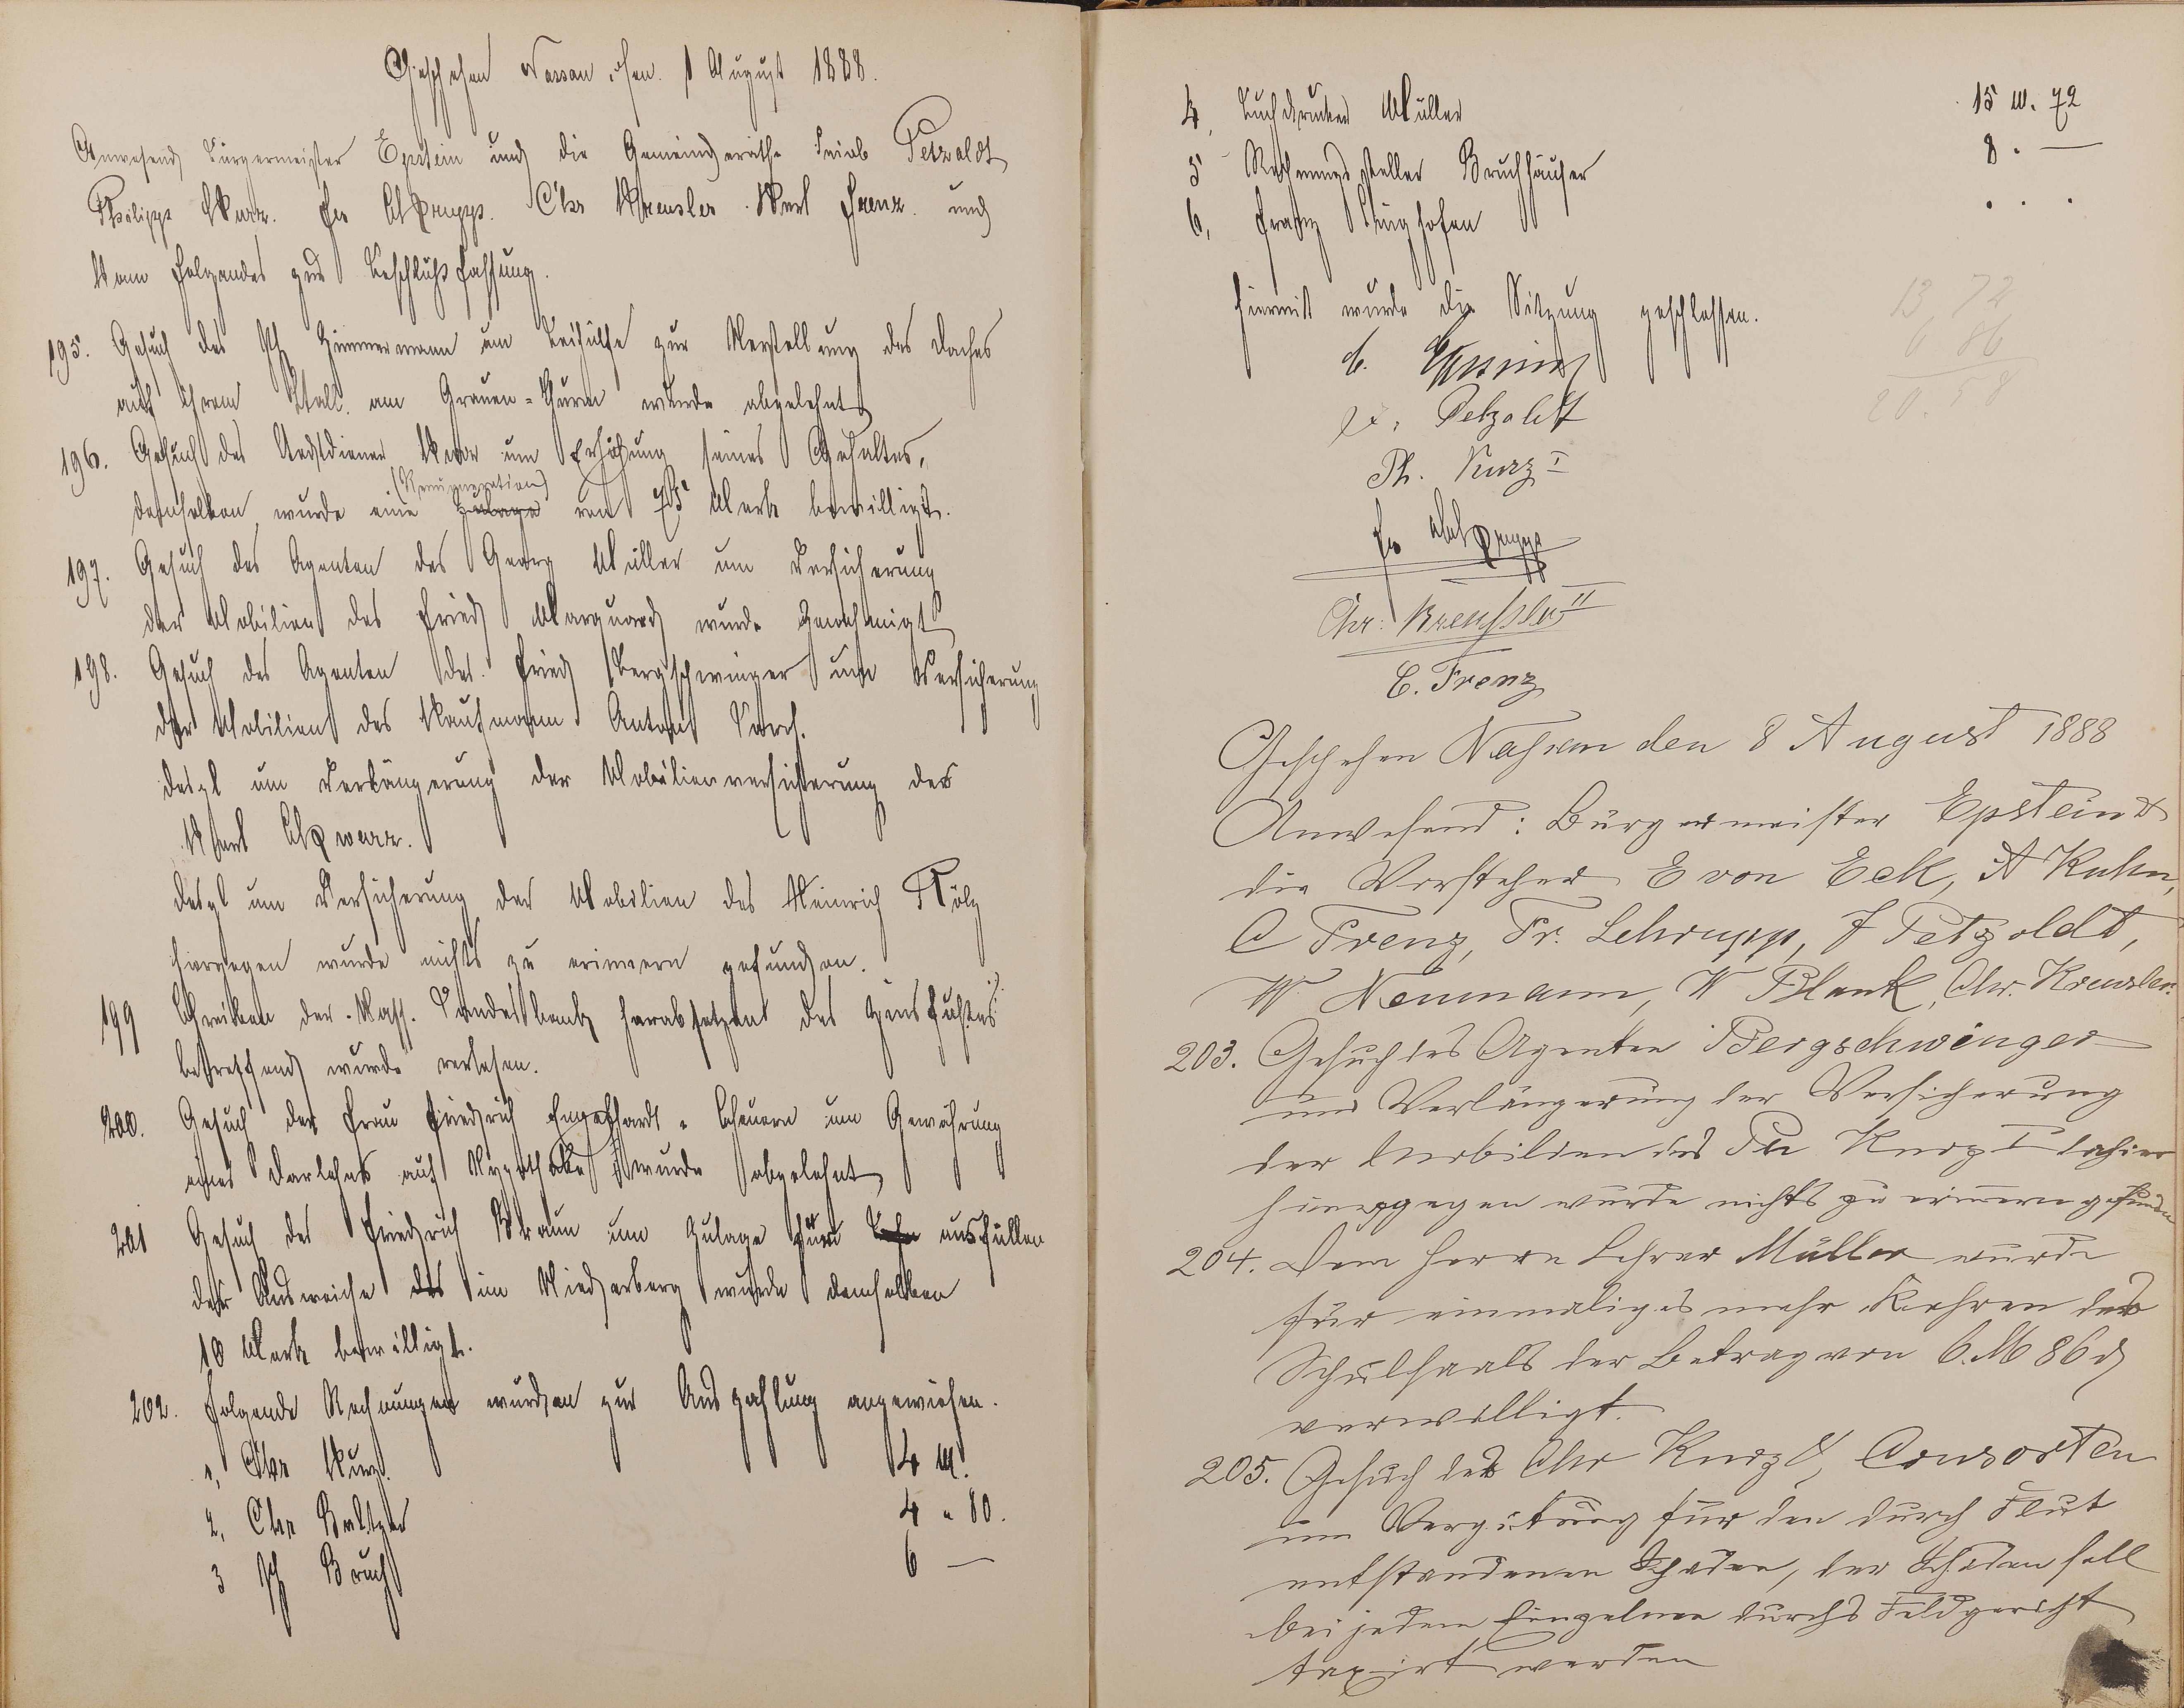 Geschehen Nassau, den. 1 August 1888.
Anwesend Bürgermeister Epstein und die Gemeinderäthe Petzoldt
Philipp Kurz. Fr Schrupp. Chr Kreusler. Karl Frenz. und
kam folgendes zur Beschlußfassung.
195. Gesuch des Zimmermann um Beihülfe zur Herstellung des Daches
auf ihrem Stall am Grauen-Thurm wurde abgelehnt
196. Gesuch des um Erhöhung seines Gehaltes,
(Remuneration)
demselben wurde eine Zulage von 75 Mark bewilligt.
197. Gesuch des Agenten des Georg Müller um Versicherung
der Mobilien des Fried Marquard wurde Genehmigt
198. Gesuch des Agenten des. Fried Bergschwinger um Versicherung
der Mobilien des Kaufmann Anton
desgl um Verlängerung der Mobilienversicherung des
Karl Schwarz.
desgl um Versicherung der Mobilien des Heinrich
hiergegen wurde nichts zu erinnern gefunden.
199 Schreiben der Nass. Landesbank herabsetzent des Zinsfußes
betreffend wurde verlesen.
200. Gesuch der Frau Friedrich Engelhardt - Scheuern um Gewährung
eines Darlehns auf Hypotheke wurde abgelehnt
201 Gesuch des Friedrich Braun um Zulage fürn ausfüllen
der Ausweiche des im Niederberg wurde demselben
10 Mark bewilligt.
202. Folgende Rechnungen wurden zur Auszahlung angewiesen.
1, Chr Kurz. 4 M.
2, Chr Baltzer 4 " 80.
3 Bruch 6 —
4, Buchdrucker Müller 15 M. 72
5 Rechnungssteller Bruchhäuser 8 . —
6, Franz Singhofen . . .
Hiermit wurde die Sitzung geschlossen.
13 72
6 86
20.58
Epstein
J. Petzoldt
Ph. Kurz I
Fr Schrupp
Chr. Kreussler II
C. Frenz
Geschehen Nassau den 8 August 1888
Anwesend: Bürgermeister Epstein &
die Vorsteher E von Eck, A Kuhn,
C Frenz, Fr. Schrupp, J Petzoldt,
W Neumann, W Blank, Chr. Kreusler.
203. Gesuch des Agenten Bergschwinger
um Verlängerung der Versicherung
der Mobilien des Ph Kurz I dahier
hiergegen wurde nichts zu erinnern gefunden
204. Dem Herrn Lehrer Müller wurde
für einmaliges mehr Kehren des
Schulsaals der Betrag von 6. M 86 d
verwilligt.
205. Gesuch des Chr Kurz & Consorten
um Vergütung für den durch Flut
entstandenen Schaden, der Schaden soll
bei jedem Einzelnen durchs Feldgericht
taxirt werden